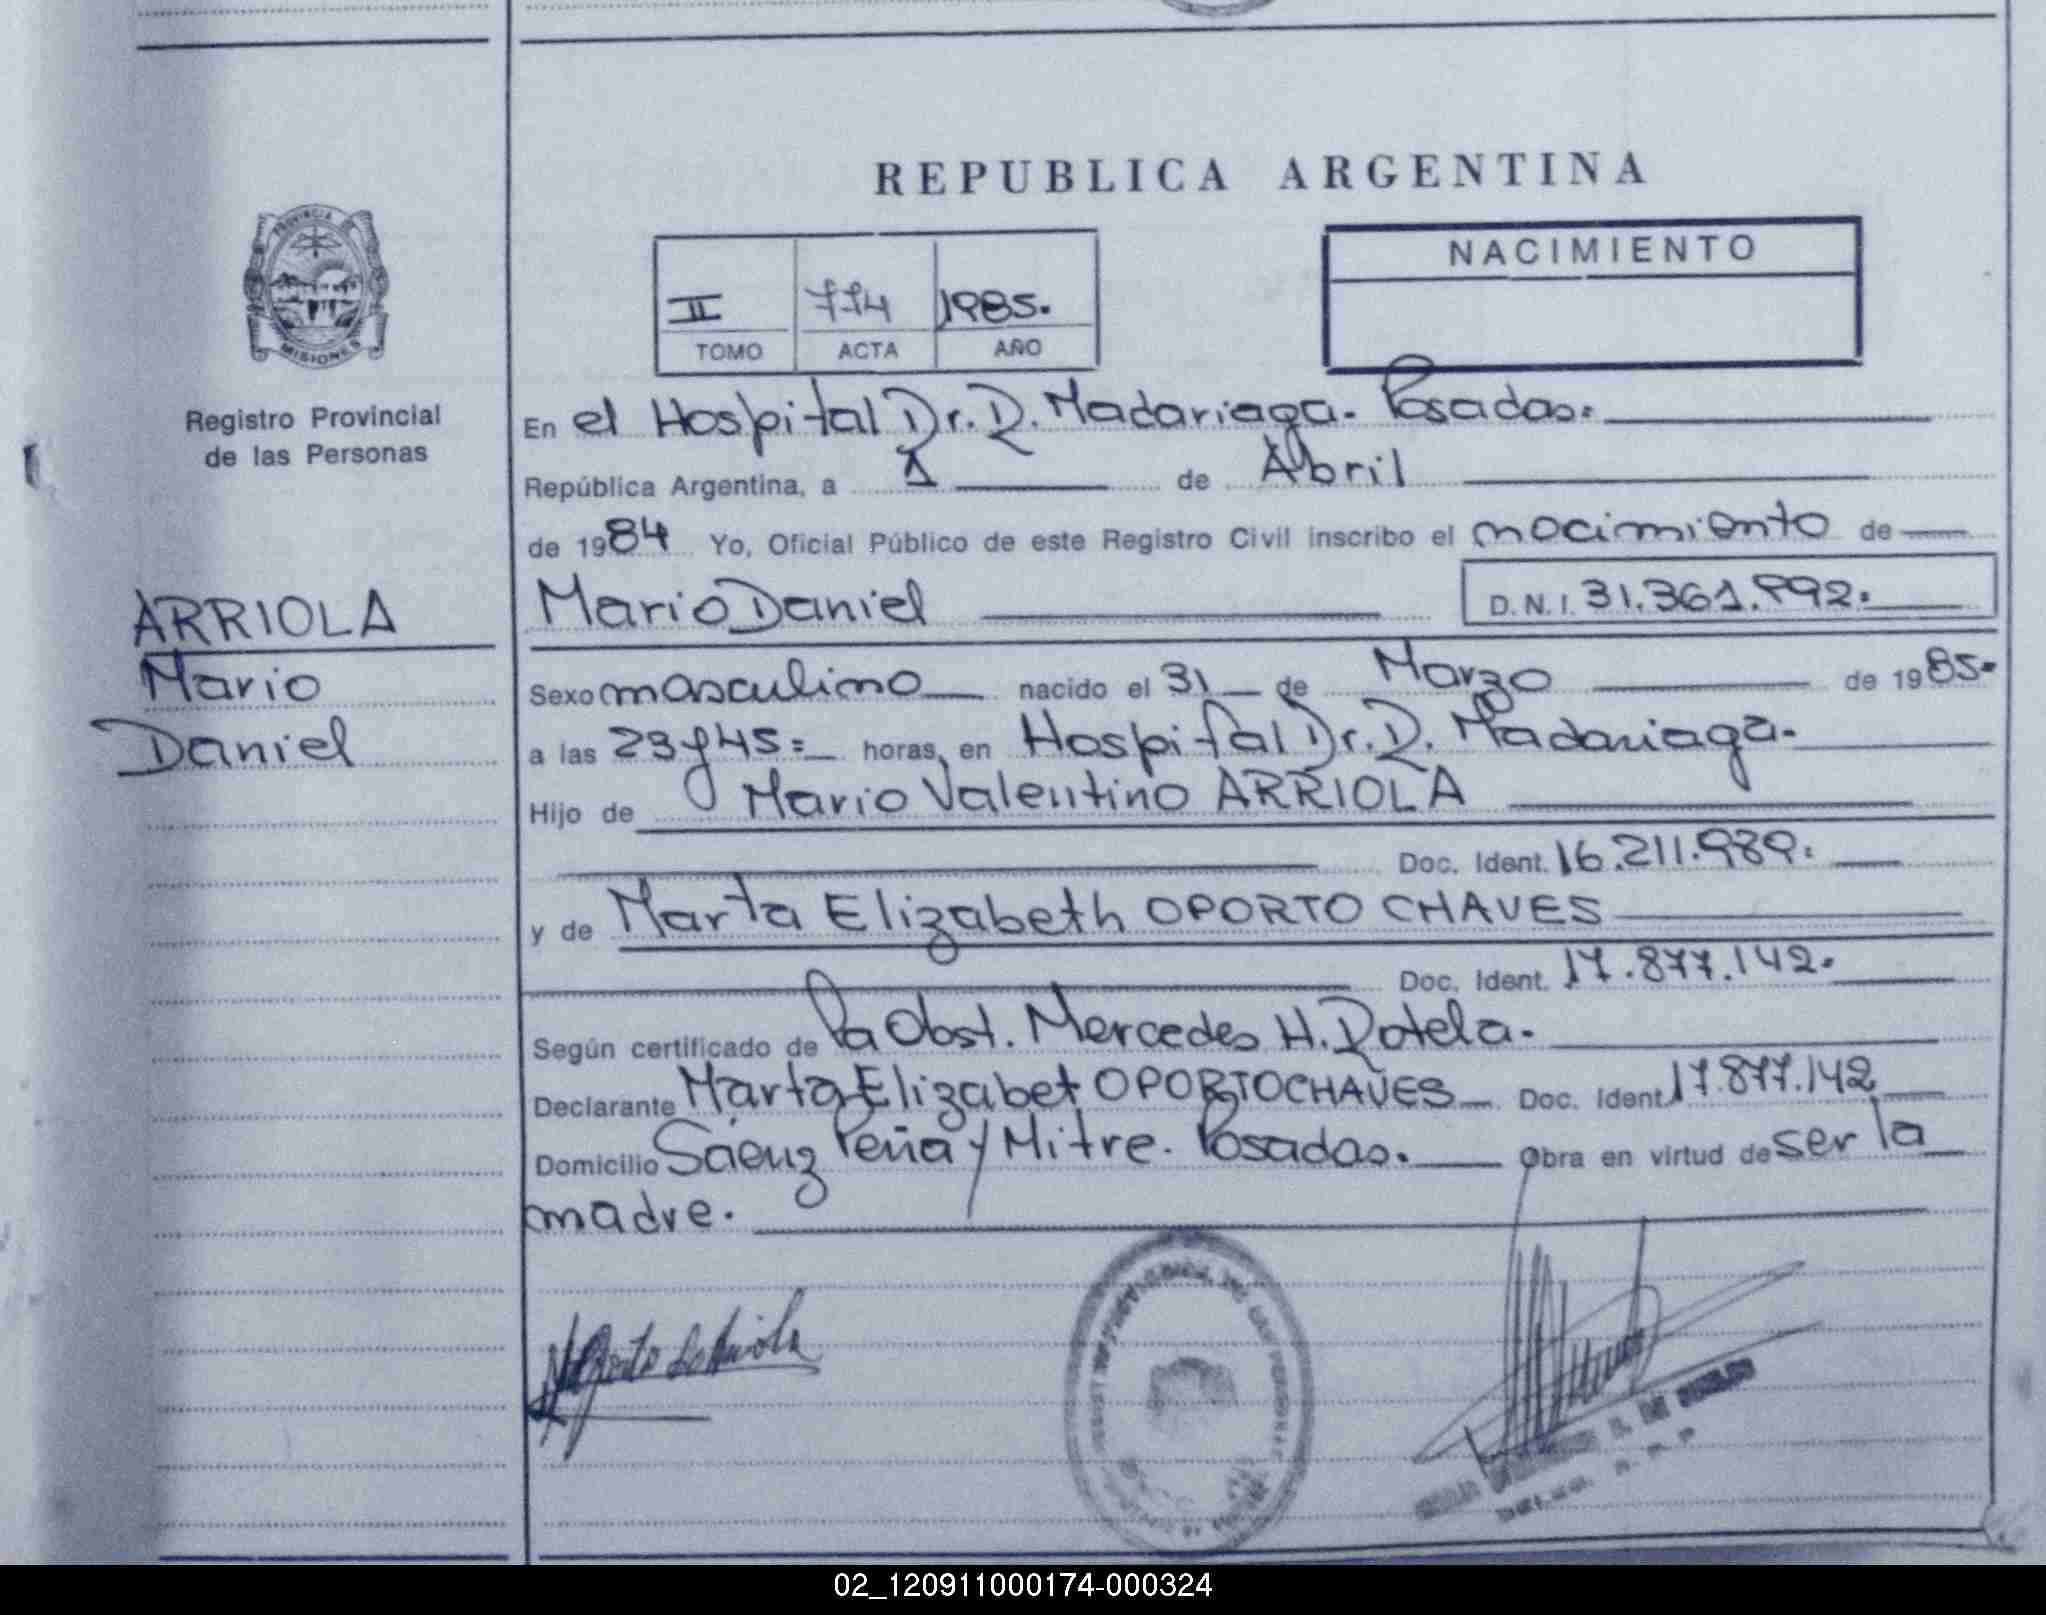 REPUBLICA ARGENTINA
PROVINCIA
MISIONES
Registro Provincial
de las Personas
II 774 1985.
TOMO ACTA AÑO
NACIMIENTO
En el Hospital Dr. R. Madariaga. Posadas.
República Argentina, a 1 de Abril
de 1984 Yo, Oficial Público de este Registro Civil inscribo el nacimiento de
ARRIOLA
Mario
Daniel
Mario Daniel D. N. I. 31.361.992.
Sexo masculino nacido el 31 de Marzo de 1985.
a las 23 y 45= horas, en Hospital Dr. R. Madariaga.
Hijo de Mario Valentino ARRIOLA
Doc. Ident. 16.211.989.
y de Marta Elizabeth OPORTO CHAVES
Doc. Ident. 17.877.142.
Según certificado de la Obst. Mercedes H. Dotela.
Declarante Marta Elizabet OPORTO CHAVES Doc. Ident. 17.877.142
Domicilio Sáenz Peña y Mitre. Posadas. Obra en virtud de ser la
madre.
02_120911000174-000324